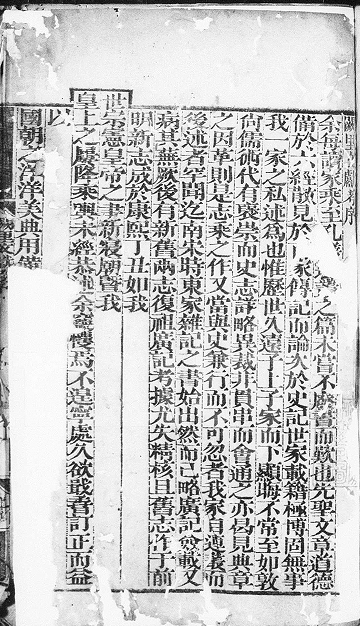 余每讀家乘至孔
之篇未嘗不廢書而歎也先聖文章道德
備於六經散見於 家傳記而論次於史記世家載籍極博固無事
我一家之私述爲也惟歷世久遠了上了家而下顯晦不常至如敦
尙儒術代有襃崇而史志詳略異裁幷貫串而會通之亦曷見典章
之因革則是志乘之作又當與史兼行而不可忽者我家自
後述者罕聞迄南宋時東家雜記之書始出然而已略廣記愈載又
病其無厥後有新舊兩志復祖廣記考據尤失精核且舊志作于前
明新志成於康熙丁丑如我
世宗憲皇帝之聿新寢廟曁我
皇上之屢隆乘輿未經恭述余竊懼焉不遑寧處久欲哉者訂正而益
以
國朝之汪洋美典用